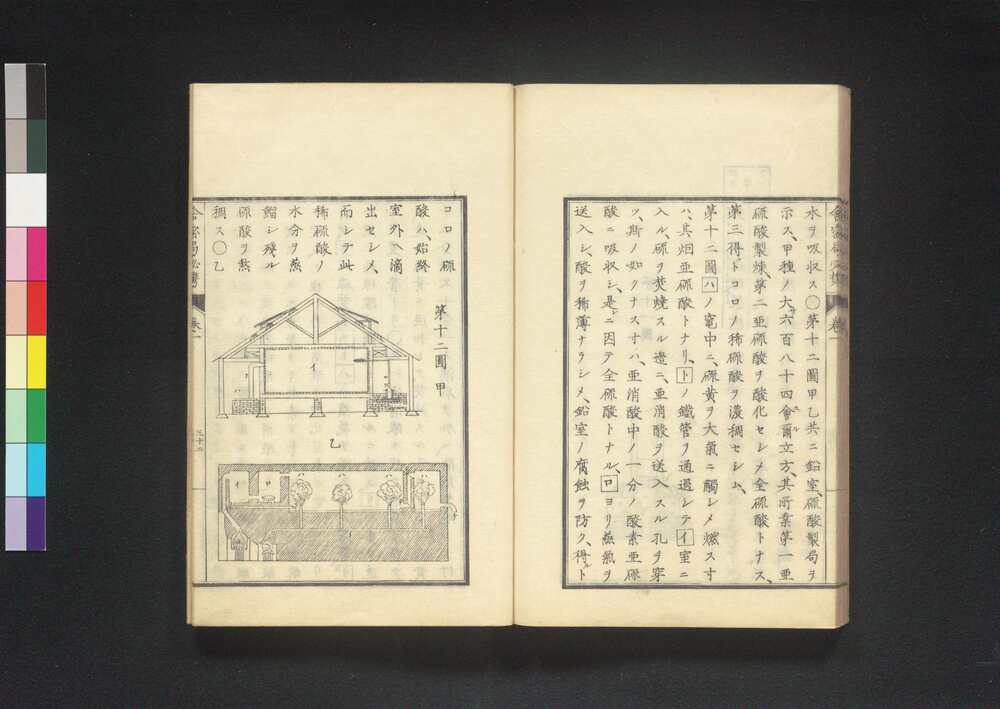 水ヲ吸收ス〇第十二圖甲乙共ニ鉛室、硫酸製局ヲ
示ス、甲種ノ大、六百八十四會爾立方、其所業第一亜
硫酸製煉、第二亜硫酸ヲ酸化セシメ全硫酸トナス、
第三得トコロノ稀硫酸ヲ濃稠セシム、
第十二圖ハノ竃中ニ、硫黄ヲ大氣ニ觸シメ燃ス寸
ハ、其烟亜硫酸トナリ、トノ鐵管ヲ通過シテイ室ニ
入ル、硫ヲ焚燒スル邉ニ、亜消酸ヲ送入スル孔ヲ穿
ツ、斯ノ如クナス寸ハ、亜消酸中ノ一分ノ酸素亜硫
酸ニ吸收シ、是ニ因テ全硫酸トナル、ロヨリ蒸氣ヲ
送入シ、酸ヲ稀薄ナラシメ、鉛室ノ腐蝕ヲ防ク、得ト
コロノ硫
酸ハ、始終
室外ヘ滴
出セシメ、
而シテ此
稀硫酸ノ
水分ヲ蒸
餾シ殘ル
硫酸ヲ熬
稠ス〇乙
第十二圖 甲
イ
乙
イ
卷一
三十二